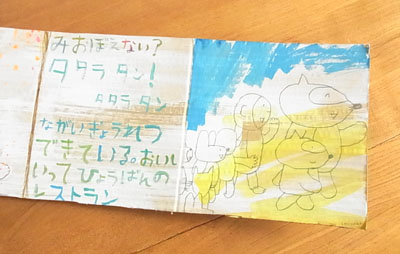 みおぼえない?
タタラタン!
タタラタン
ながいぎょうれつ
できている。おいし
いってひょうばんの
レストラン